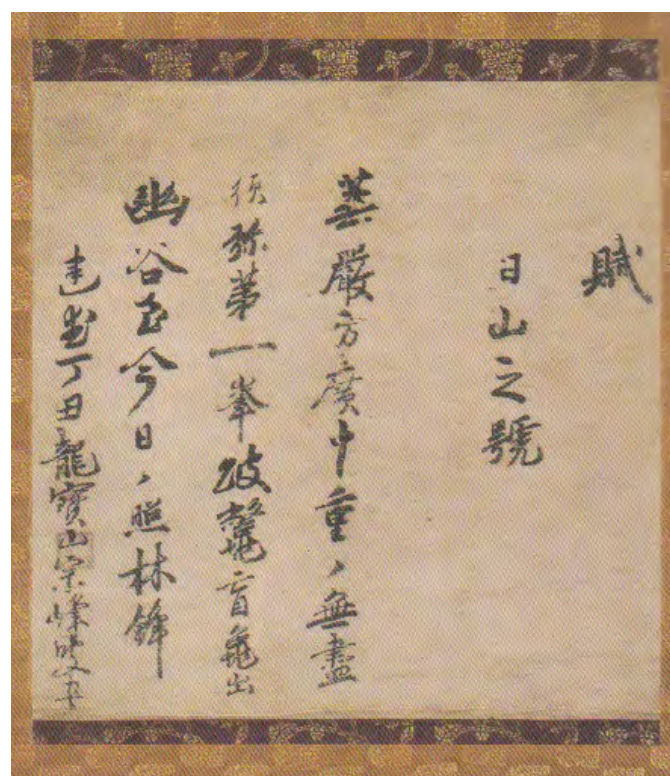 賦
日山之號
華嚴方廣中重々無盡
須弥第一峯跛鼈盲龜出
幽谷至今日々照林
建武丁丑龍寶山宗峰叟書